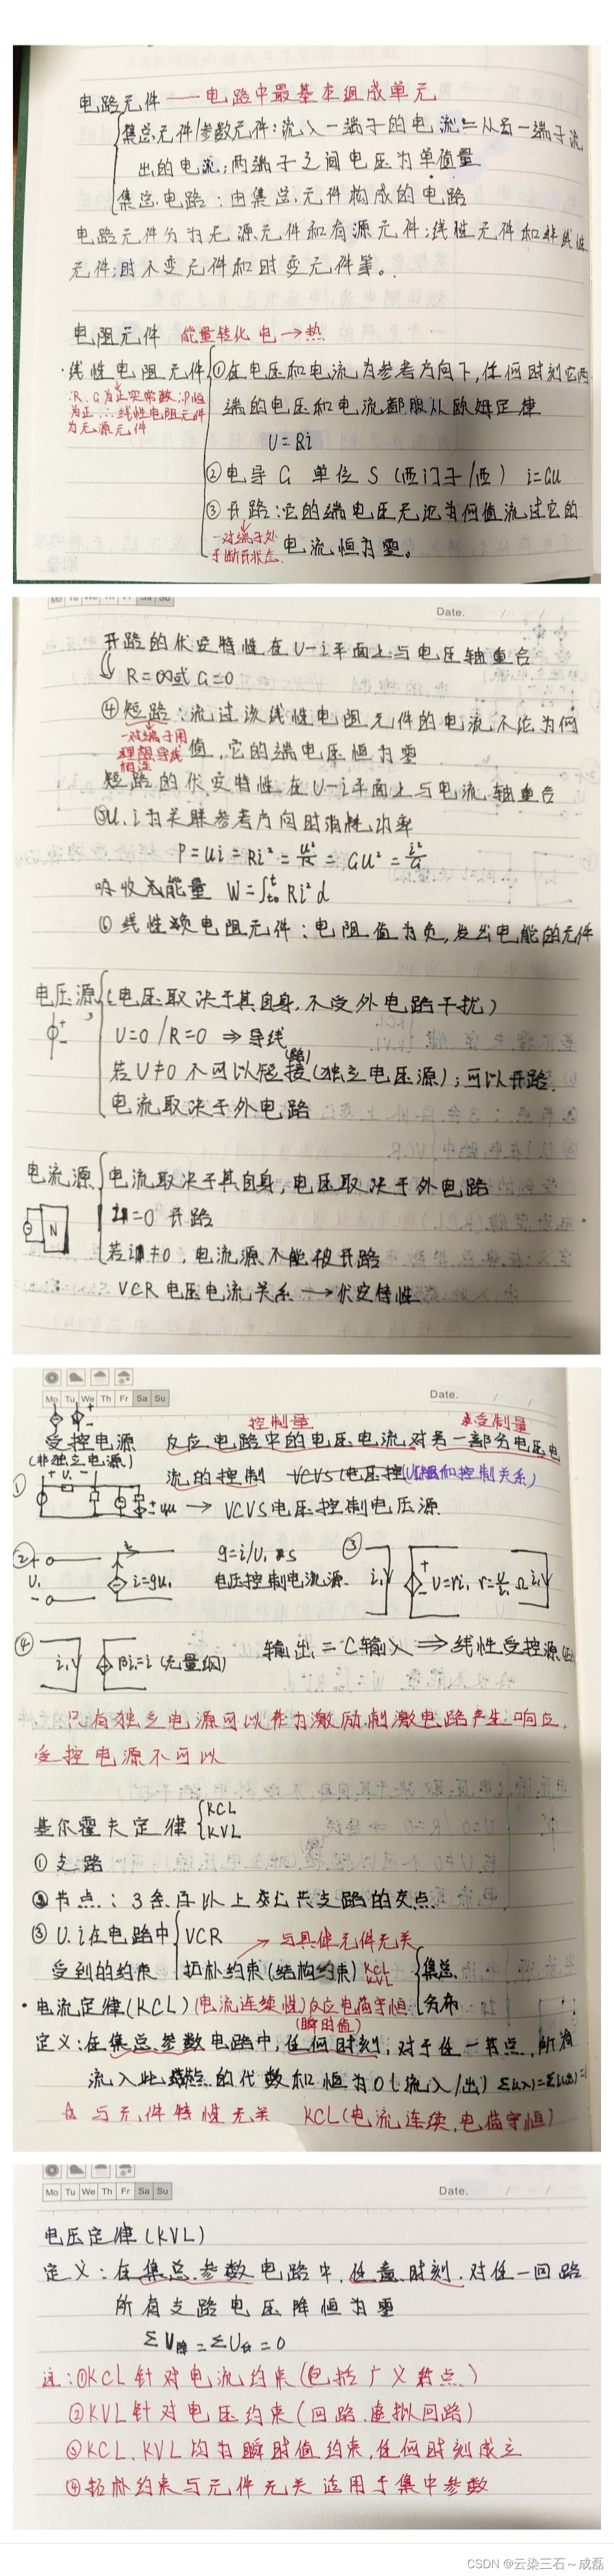 电路元件——电路中最基本组成单元
集总元件/参数元件:流入一端子的电流=从另一端子流
出的电流;两端子之间电压为单值量
集总电路:由集总元件构成的电路
电路元件分为无源元件和有源元件;线性元件和非线性
元件;时不变元件和时变元件等。
电阻元件 能量转化 电→热
·线性电阻元件 ①在电压和电流为参考方向下,任何时刻它两
∵R、G为正实常数∴P恒
为正∴线性电阻元件
为无源元件
端的电压和电流都服从欧姆定律
U=Ri
②电导G 单位S(西门子/西) i=GU
③开路:它的端电压无论为何值流过它的
一对端子处
于断开状态.
电流恒为零。
Mo Tu We Th Fr Sa Su
Date. / /
开路的伏安特性在U-i平面上与电压轴重合
R=∞或G=0
④短路:流过该线性电阻元件的电流不论为何
一对端子用
理想导线
相连
值,它的端电压恒为零
短路的伏安特性在U-i平面上与电流轴重合
⑤U.i为关联参考方向时消耗功率
P=Ui=Ri²=U²/R=GU²=i²/G
吸收电能量 W=∫t₀ᵗ Ri²d
⑥线性负电阻元件:电阻值为负,发出电能的元件
电压源 (电压取决于其自身,不受外电路干扰)
+
-
U=0/R=0 ⇒导线
(路)
若U≠0不可以短接(独立电压源);可以开路.
电流取决于外电路
电流源 电流取决于其自身,电压取决于外电路
N
=0 开路
若i≠0,电流源不能被开路
VCR 电压电流关系→伏安特性
Mo Tu We Th Fr Sa Su
Date. / /
控制量 受制量
受控电源 反应电路中的电压电流对另一部分电压电
(非独立电源)
流的控制 VCVS(电压控
① → VCVS电压控制电压源
② + U₁ - i=gu₁
g=i/U₁
电压控制电流源
③ i₁ + - U=ri₁ Ω
④ i₁ βi₁=i(无量纲)
输出=C输入⇒线性受控源
只有独立电源可以作为激励,刺激电路产生响应,
受控电源不可以
基尔霍夫定律 KCL
KVL
①支路
②节点:3条再以上支公共支路的交点
③U.i在电路中 VCR
受到的约束 拓朴约束(结构约束) KCL KVL
与具体元件无关
集总
分布
·电流定律(KCL)(电流连续性)反应电荷守恒
(瞬时值)
定义:在集总参数电路中,任何时刻,对于任一节点,所有
流入此结点的代数和恒为0(流入/出)
与元件特性无关 KCL(电流连续,电荷守恒)
Mo Tu We Th Fr Sa Su
Date. / /
电压定律(KVL)
定义:在集总参数电路中,任意时刻,对任一回路
所有支路电压降恒为零
ΣU降=ΣU升=0
注:①KCL针对电流约束(包括广义结点)
②KVL针对电压约束(回路.虚拟回路)
③KCL、KVL均为瞬时值约束,任何时刻成立
④拓朴约束与元件无关 适用于集中参数
CSDN @云染三石~成磊